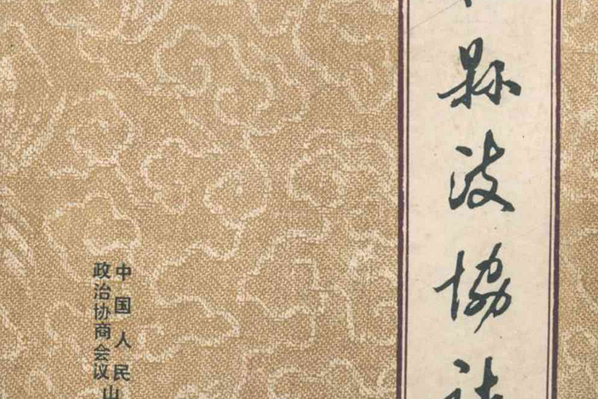 县政协
中国人民
政治协商会议
山